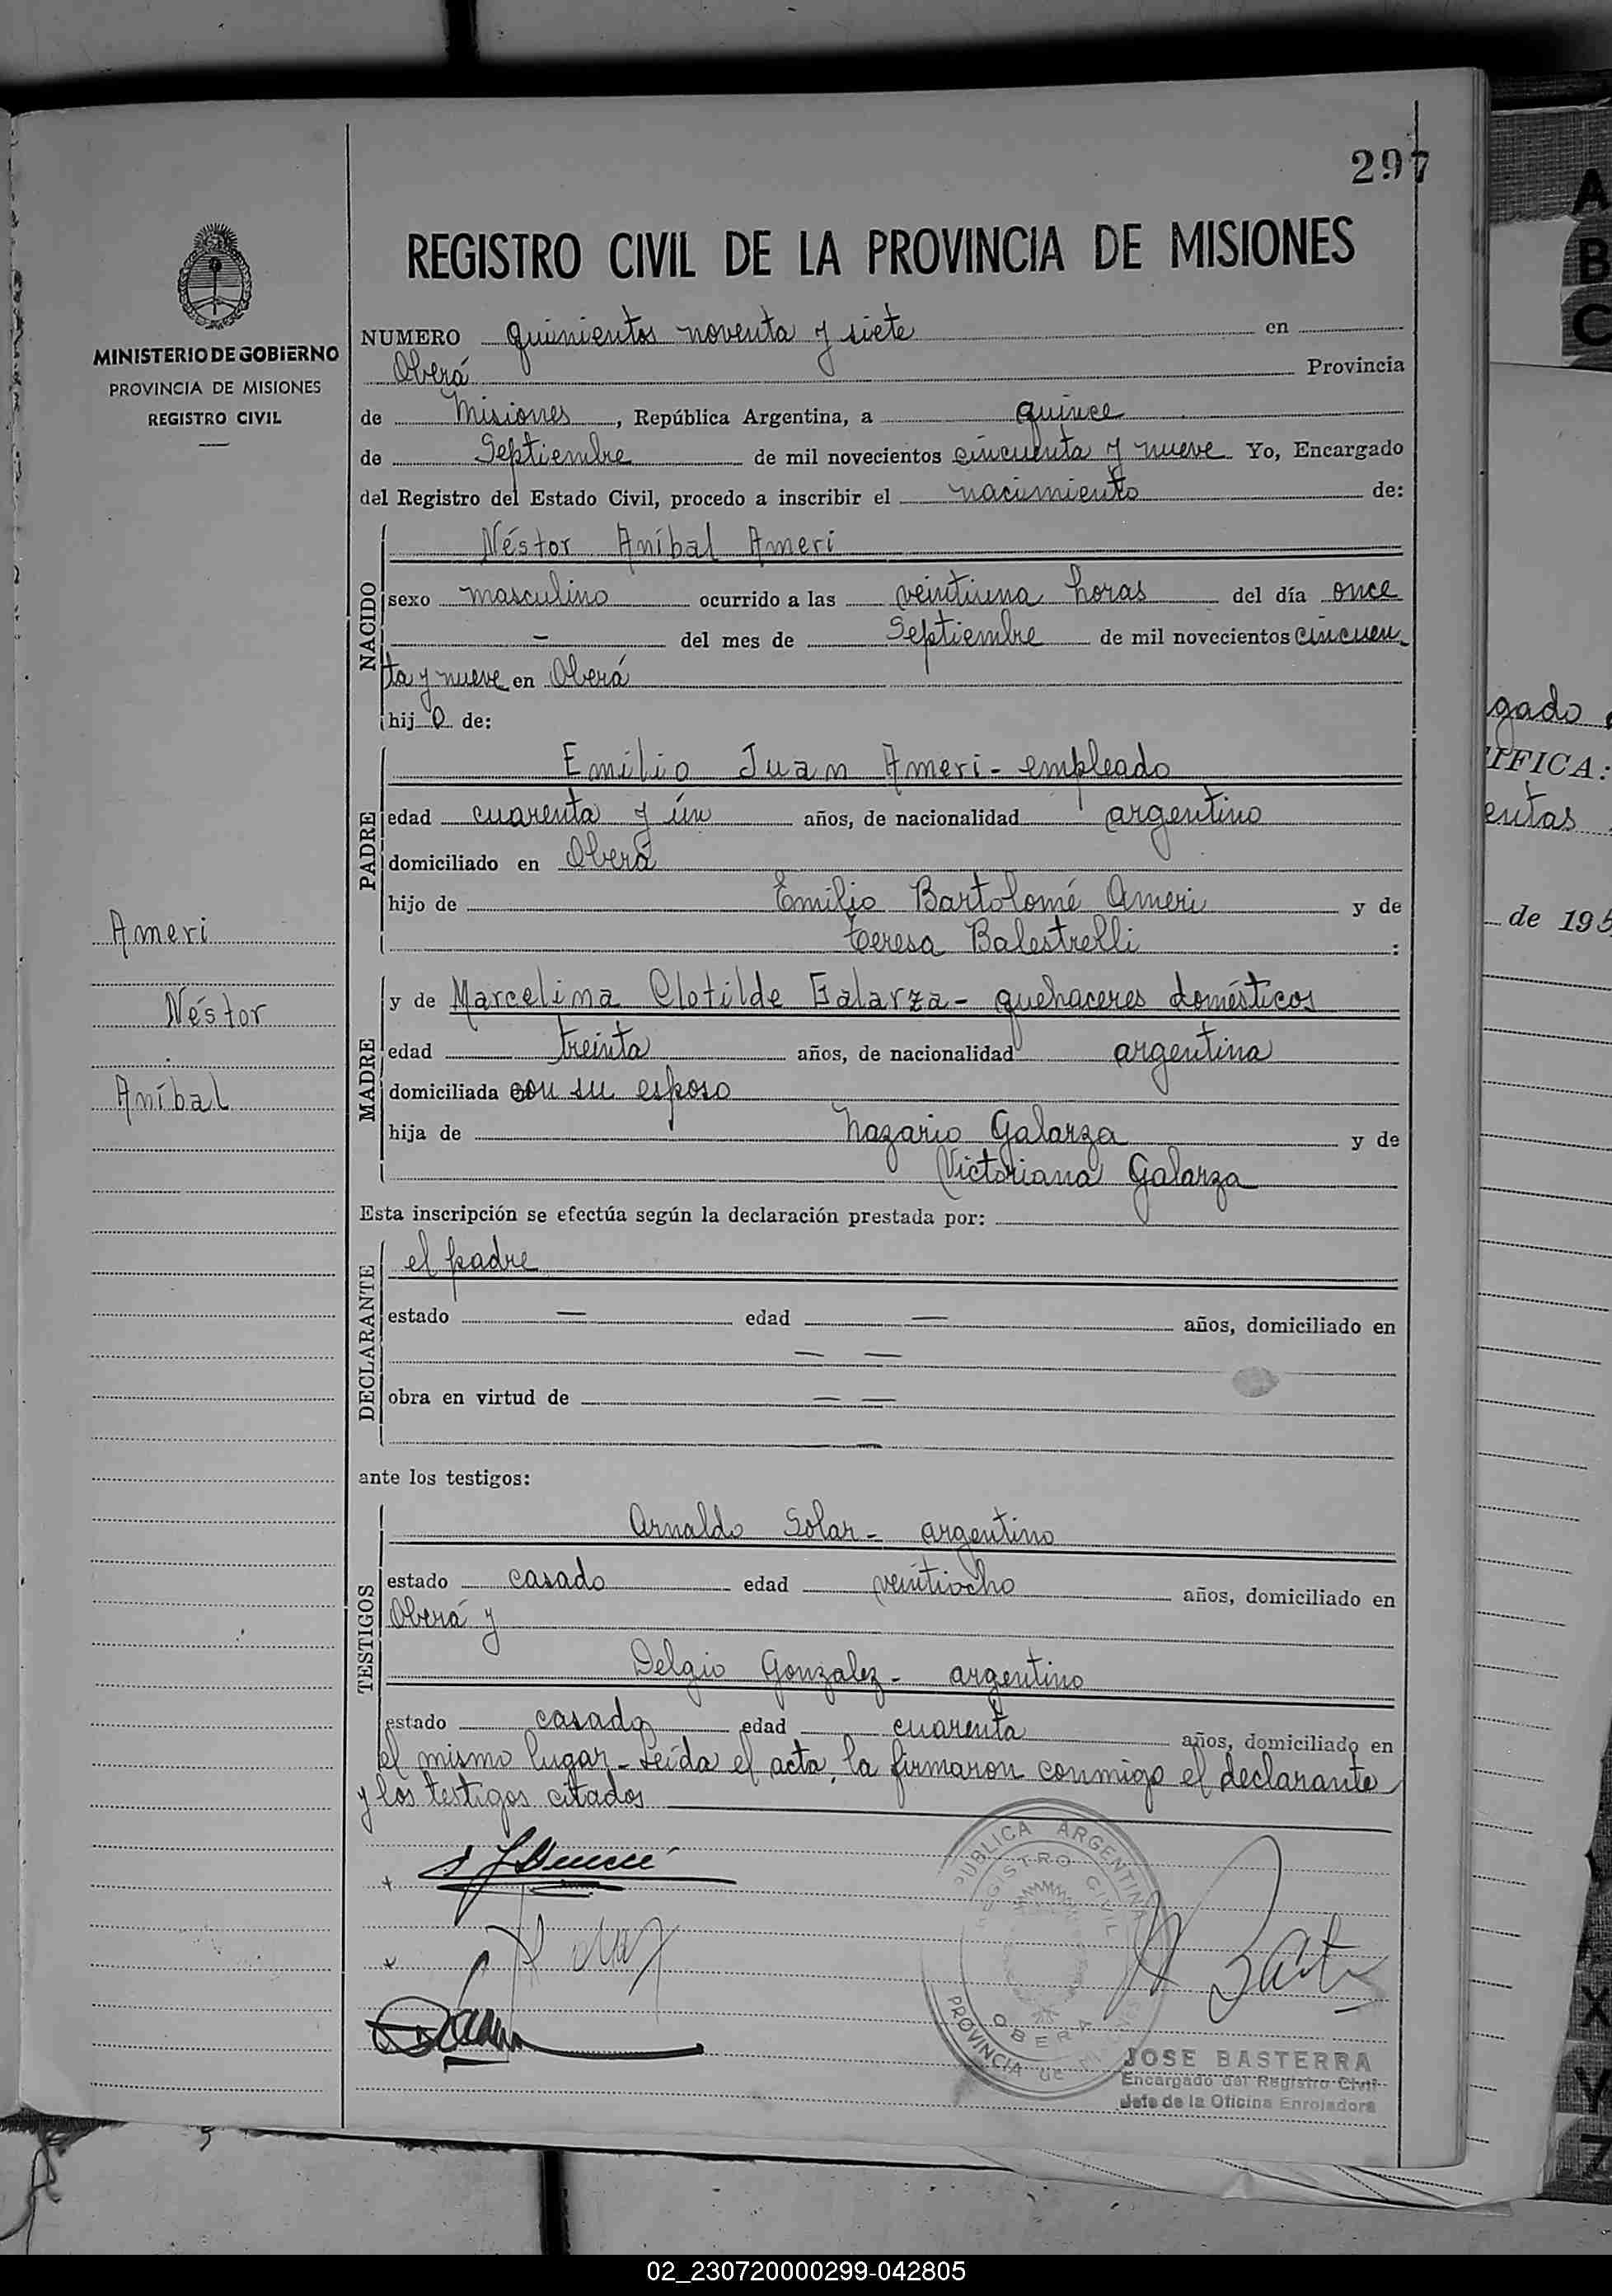 297
REGISTRO CIVIL DE LA PROVINCIA DE MISIONES
MINISTERIO DE GOBIERNO
PROVINCIA DE MISIONES
REGISTRO CIVIL
NUMERO quinientos noventa y siete en
Oberá Provincia
de Misiones, República Argentina, a quince
de Septiembre de mil novecientos cincuenta y nueve Yo, Encargado
del Registro del Estado Civil, procedo a inscribir el nacimiento de:
NACIDO
Néstor Aníbal Ameri
sexo masculino ocurrido a las veintiuna horas del día once
- del mes de Septiembre de mil novecientos cincuen
ta y nueve en Oberá
hijo de:
PADRE
Emilio Juan Ameri - empleado
edad cuarenta y ún años, de nacionalidad argentino
domiciliado en Oberá
hijo de Emilio Bartolomé Ameri y de
Teresa Balestrelli:
MADRE
y de Marcelina Clotilde Galarza - quehaceres domésticos
edad treinta años, de nacionalidad argentina
domiciliada con su esposo
hija de Nazario Galarza y de
Victoriana Galarza
Esta inscripción se efectúa según la declaración prestada por:
DECLARANTE
el padre
estado — edad — años, domiciliado en
— —
obra en virtud de — —
—
ante los testigos:
TESTIGOS
Arnaldo Solar - argentino
estado casado edad veintiocho años, domiciliado en
Oberá y
Delgio Gonzalez - argentino
estado casado edad cuarenta años, domiciliado en
el mismo lugar - Leída el acta, la firmaron conmigo el declarante
y los testigos citados
Ameri
Néstor
Aníbal
REGISTRO CIVIL
OBERA
PROVINCIA DE MISIONES
JOSE BASTERRA
Encargado del Registro Civil
Jefe de la Oficina Enroladora
A
B
C
X
Y
Z
gado
IFICA:
entas
de 195
02_230720000299-042805